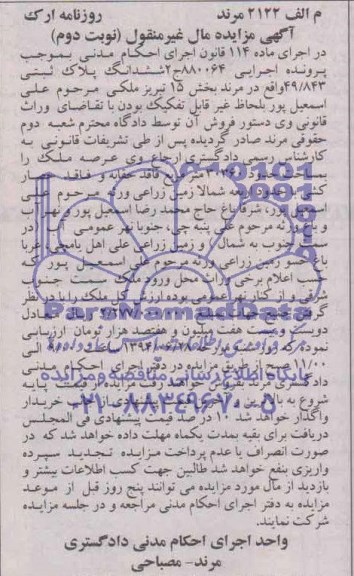 م الف ۲۱۲۲ مرند روزنامه ارک
آگهی مزایده مال غیرمنقول (نوبت دوم)
در اجرای ماده ۱۱۴ قانون اجرای احکام مدنی بموجب
پرونده اجرایی ۸۸۰۰۶۴ج۲ششدانگ پلاک ثبتی
۴۹/۸۴۳واقع در مرند بخش ۱۵ تبریز ملکی مرحوم علی
اسمعیل پور بلحاظ غیر قابل تفکیک بودن با تقاضای وراث
قانونی وی دستور فروش آن توسط دادگاه محترم شعبه دوم
حقوقی مرند صادر گردیده پس از طی تشریفات قانونی به
کارشناس رسمی دادگستری ارجاع وی عرصه ملک را
شمالا زمین زراعی ورثه مرحوم علی
اسمعیل پور، شرقا باغ حاج محمد رضا اسمعیل پور و نهر آب
و باغ ورثه مرحوم علی پنبه چی، جنوبا نهر عمومی آب (در
سمت جنوب به شمال) و زمین زراعی علی اهل یامچی، غربا
زمین زراعی ورثه مرحوم علی اسمعیل پور که
حسب اعلام برخی وراث محل ورود ملک سمت جنوب
شرقی و از کنار نهر عمومی بوده ارزش کل ملک را با در نظر
معادل
دویست و بیست هفت میلیون و هفتصد هزار تومان ارزیابی
نموده که روز شنبه مورخه ۱۳۹۴/۰۶/۲۸ ساعت الی
۱۱/۰۰ از طریق مزایده در دفتر اجرای احکام مدنی
دادگستری مرند بفروش خواهد رفت مزایده از قیمت پایه
شروع به بالاترین خریدار
واگذار خواهد شد ۱۰ در صد قیمت پیشنهادی فی المجلس
دریافت برای بقیه بمدت یکماه مهلت داده خواهد شد که در
صورت انصراف یا عدم پرداخت مزایده تجدید سپرده
واریزی بنفع خواهد شد طالبین جهت کسب اطلاعات بیشتر و
بازدید از مال مورد مزایده می توانند پنج روز قبل از موعد
مزایده به دفتر اجرای احکام مدنی مراجعه و در جلسه مزایده
شرکت نمایند.
واحد اجرای احکام مدنی دادگستری
مرند- مصباحی
ParsNamadData
پایگاه اطلاع رسانی مناقصه و مزایده
۰۲۱-۸۸۳۴۹۶۷۰-۵